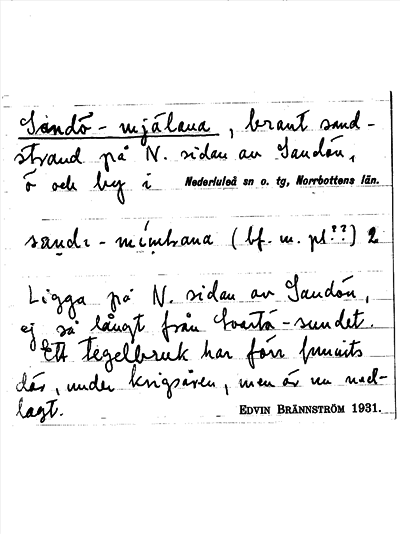 Sandö-mjälana, brant sand-
strand på N. sidan av Sandön,
ö och by i Nederluleå sn o. tg, Norrbottens län.
(bf. m. pl??) 2
Ligga på N. sidan av Sandön,
ej så långt från Svartö-sundet.
Ett tegelbruk har förr funnits
där, under krigsåren, men är nu ned-
lagt. EDVIN BRÄNNSTRÖM 1931.